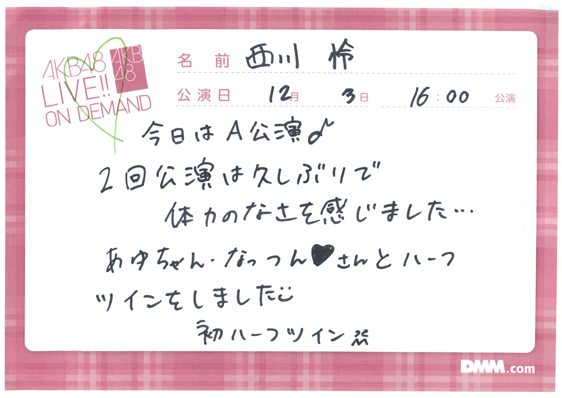 AKB48
LIVE!!
ON DEMAND
AKB
48
名前 西川 怜
公演日 12月 3日 16:00 公演
今日はA公演♪
2回公演は久しぶりで
体力のなさを感じました…
あゆちゃん・なっつん♥さんとハーフ
ツインをしました
初ハーフツイン
DMM.com